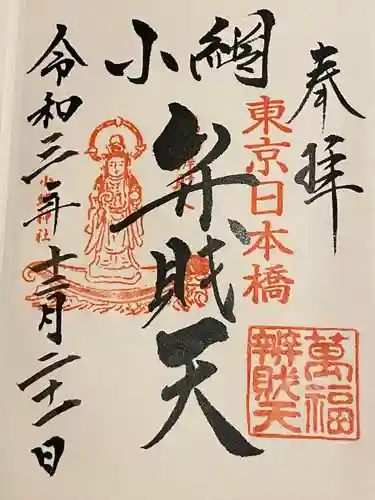 奉拝
東京日本橋
小網
弁財天
萬福
辨財天
小網神社
令和三年十二月二十一日